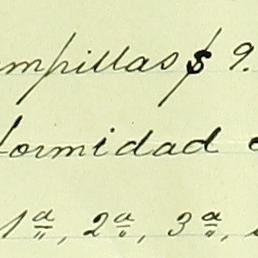 mpillas $ 9.
formidad
1ª, 2ª, 3ª,